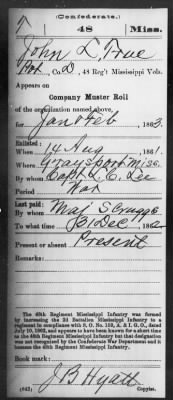 (Confederate.)
48 Miss.
John L. True
Pvt., Co. D, 48 Reg't Mississippi Vols.
Appears on
Company Muster Roll
of the organization named above,
for Jan & Feb, 1863.
Enlisted:
When 14 Aug, 1861.
Where Graysport Miss.
By whom Capt. L. C. Lee
Period War
Last paid:
By whom Maj Scruggs
To what time 31 Dec, 1862
Present or absent Present
Remarks:
The 48th Regiment Mississippi Infantry was formed
by increasing the 2d Battalion Mississippi Infantry to a
regiment in compliance with S. O. No. 159, A. & I. G. O., dated
July 10, 1863, and appears to have been known for a short time
as the 48th Regiment Mississippi Infantry; but that designation
was not recognized by the Confederate War Department and it
became the 48th Regiment Mississippi Infantry.
Book mark:
(642) J B Hyatt
Copyist.